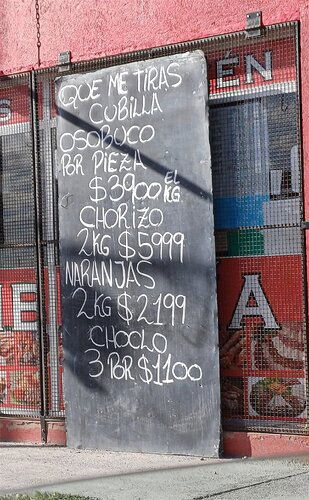 QUE ME TIRAS
CUBILLA
OSOBUCO
POR PIEZA
$3900 EL KG
CHORIZO
2KG $5999
NARANJAS
2KG $2199
CHOCLO
3 POR $1100
S
ÉN
LE
A